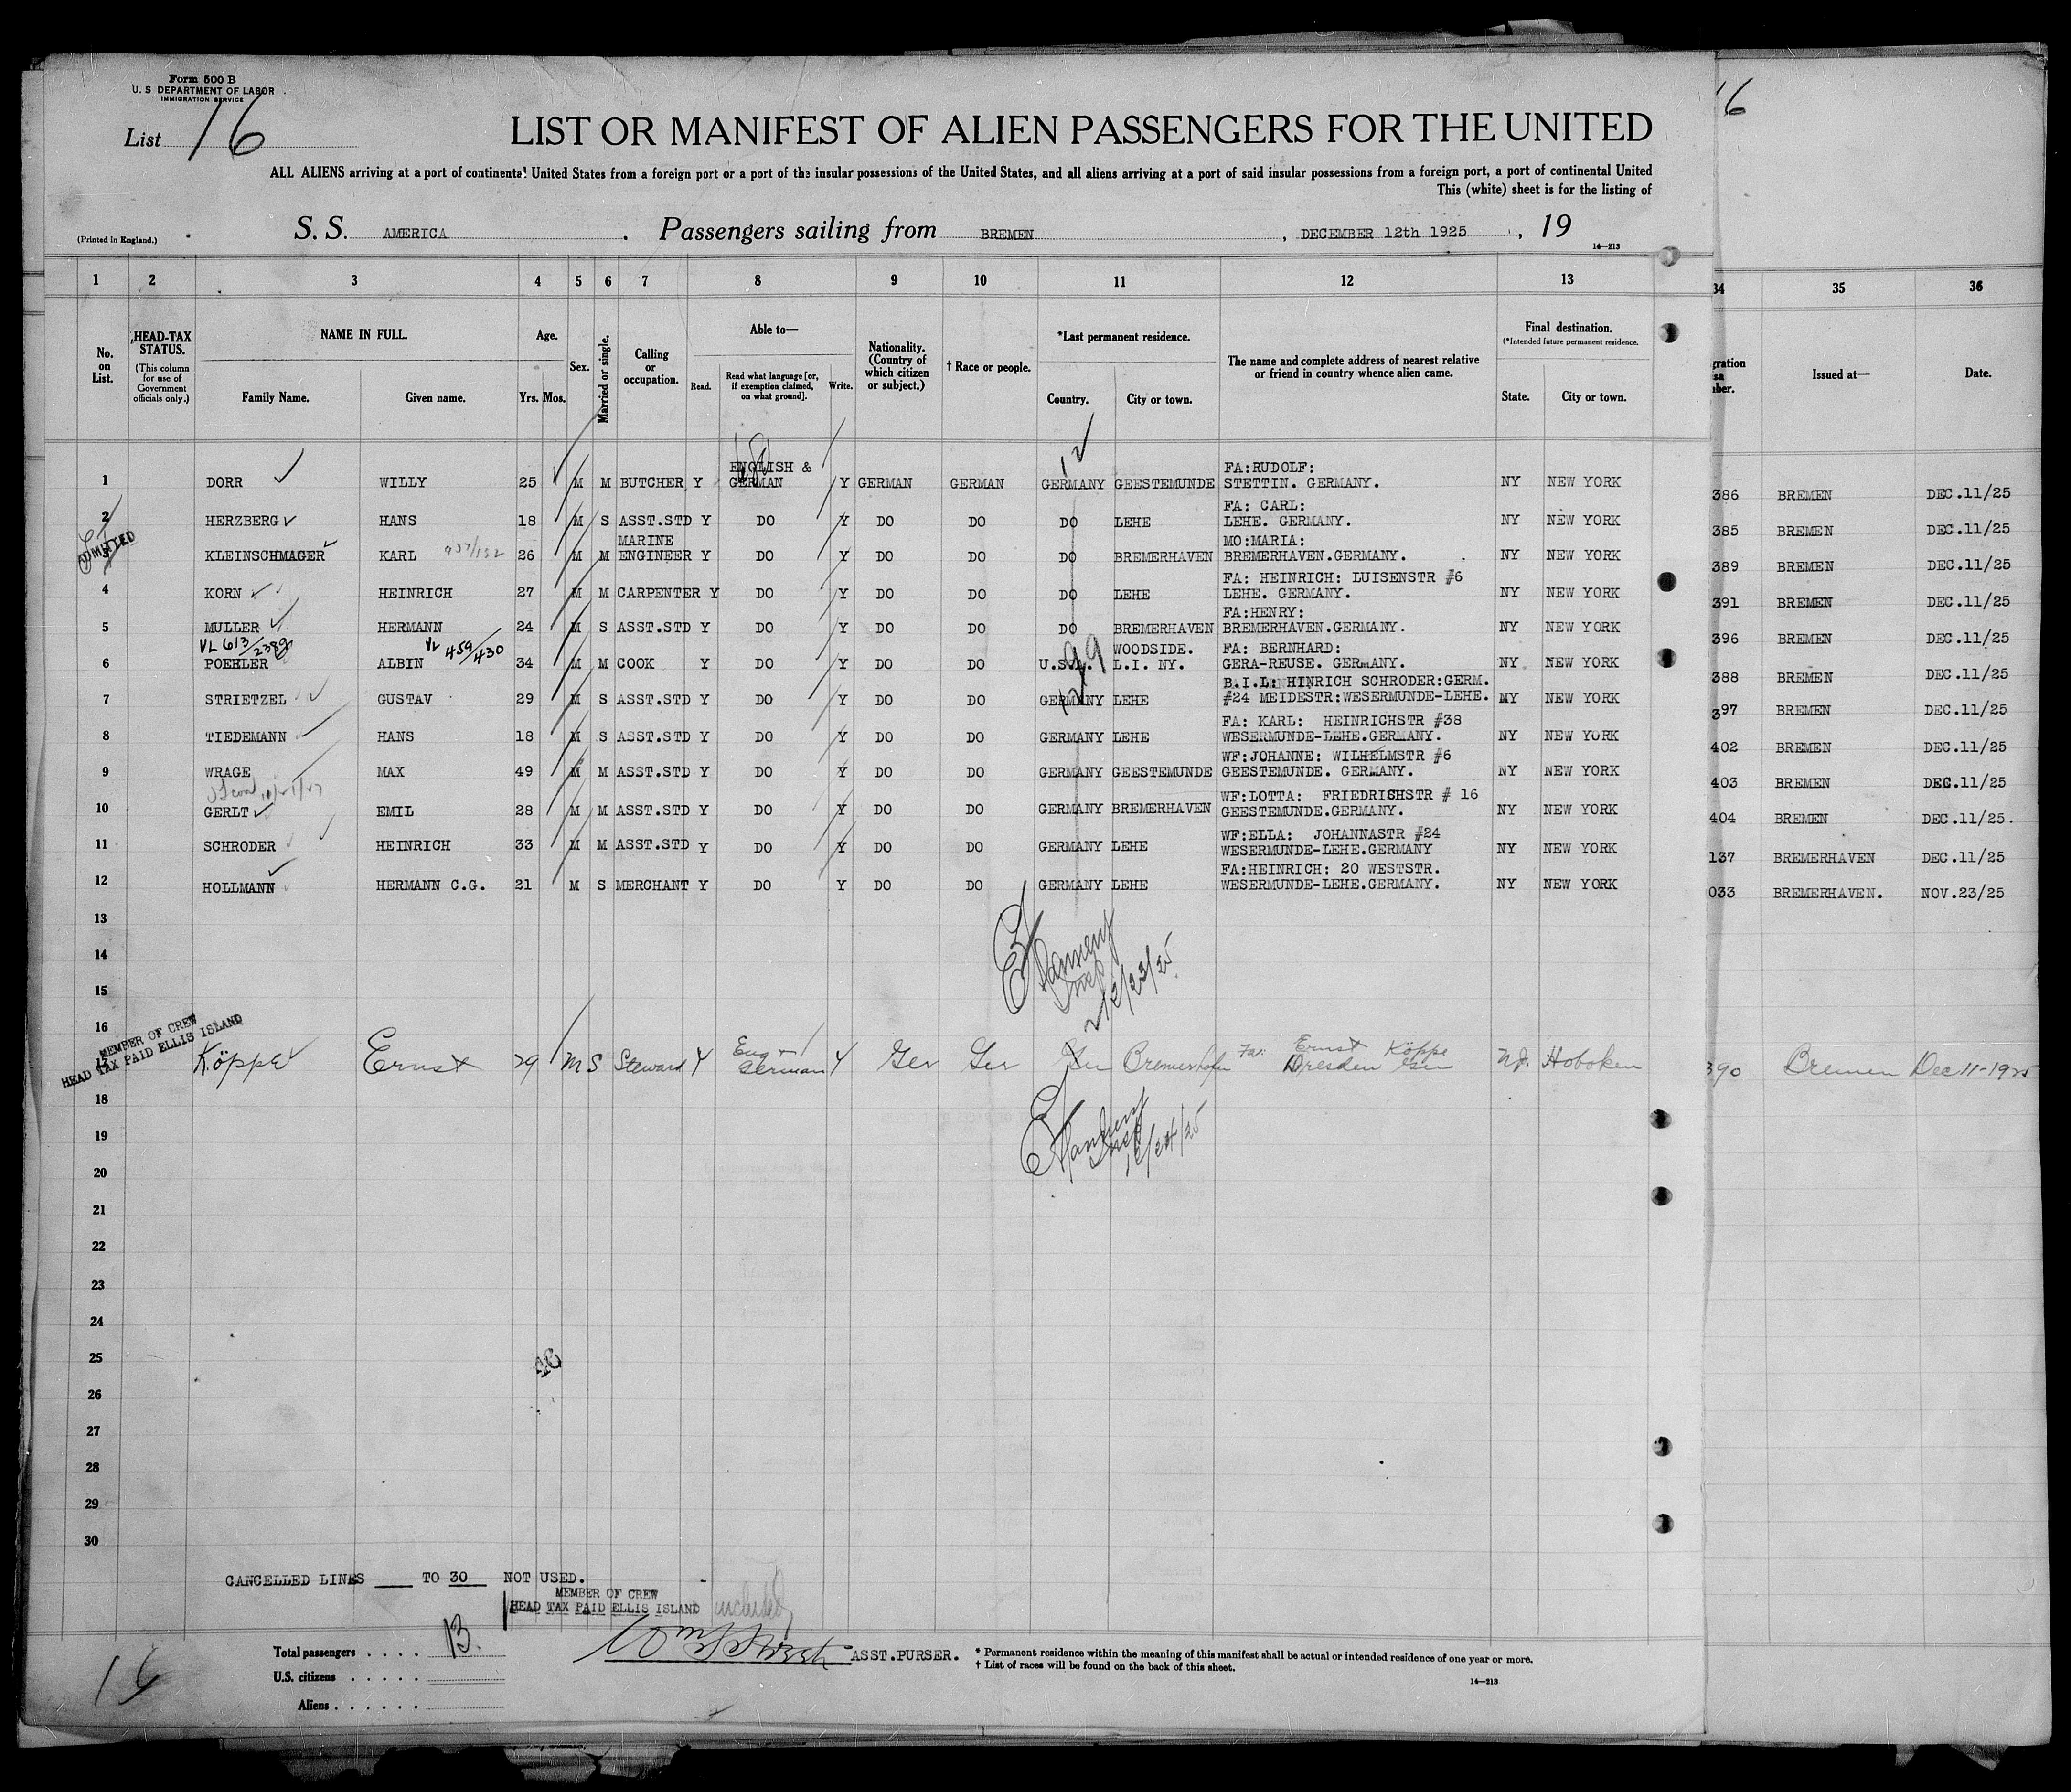 Form 500 B
U. S DEPARTMENT OF LABOR
IMMIGRATION SERVICE
List 16
LIST OR MANIFEST OF ALIEN PASSENGERS FOR THE UNITED
ALL ALIENS arriving at a port of continental United States from a foreign port or a port of the insular possessions of the United States, and all aliens arriving at a port of said insular possessions from a foreign port, a port of continental United
This (white) sheet is for the listing of
(Printed in England.)
S. S. AMERICA . Passengers sailing from BREMEN , DECEMBER 12th 1925 , 19
14—213
1 2 3 4 5 6 7 8 9 10 11 12 13 34 35 36
No. on List.
HEAD-TAX STATUS. (This column for use of Government officials only.)
NAME IN FULL.
Family Name. Given name.
Age.
Yrs. Mos.
Sex.
Married or single.
Calling or occupation.
Able to—
Read. Read what language [or, if exemption claimed, on what ground]. Write.
Nationality. (Country of which citizen or subject.)
† Race or people.
*Last permanent residence.
Country. City or town.
The name and complete address of nearest relative or friend in country whence alien came.
Final destination.
(*Intended future permanent residence.
State. City or town.
Issued at— Date.
ENGLISH & FA:RUDOLF:
1 DORR WILLY 25 M M BUTCHER Y GERMAN Y GERMAN GERMAN GERMANY GEESTEMUNDE STETTIN. GERMANY. NY NEW YORK 386 BREMEN DEC.11/25
FA: CARL:
2 HERZBERG HANS 18 M S ASST.STD Y DO Y DO DO DO LEHE LEHE. GERMANY. NY NEW YORK 385 BREMEN DEC.11/25
ADMITTED MARINE MO:MARIA:
3 KLEINSCHMAGER KARL 26 M M ENGINEER Y DO Y DO DO DO BREMERHAVEN BREMERHAVEN.GERMANY. NY NEW YORK 389 BREMEN DEC.11/25
FA: HEINRICH: LUISENSTR #6
4 KORN HEINRICH 27 M M CARPENTER Y DO Y DO DO DO LEHE LEHE. GERMANY. NY NEW YORK 391 BREMEN DEC.11/25
FA:HENRY:
5 MULLER HERMANN 24 M S ASST.STD Y DO Y DO DO DO BREMERHAVEN BREMERHAVEN.GERMANY. NY NEW YORK 396 BREMEN DEC.11/25
VL 613/2389 VL 459/430 99 WOODSIDE. FA: BERNHARD:
6 POEHLER ALBIN 34 M M COOK Y DO Y DO DO U.S.A. L.I. NY. GERA-REUSE. GERMANY. NY NEW YORK 388 BREMEN DEC.11/25
B.I.L: HINRICH SCHRODER:GERM.
7 STRIETZEL GUSTAV 29 M S ASST.STD Y DO Y DO DO GERMANY LEHE #24 MEIDESTR:WESERMUNDE-LEHE. NY NEW YORK 397 BREMEN DEC.11/25
FA: KARL: HEINRICHSTR #38
8 TIEDEMANN HANS 18 M S ASST.STD Y DO Y DO DO GERMANY LEHE WESERMUNDE-LEHE.GERMANY. NY NEW YORK 402 BREMEN DEC.11/25
WF:JOHANNE: WILHELMSTR #6
9 WRAGE MAX 49 M M ASST.STD Y DO Y DO DO GERMANY GEESTEMUNDE GEESTEMUNDE. GERMANY. NY NEW YORK 403 BREMEN DEC.11/25
WF:LOTTA: FRIEDRICHSTR # 16
10 GERLT EMIL 28 M M ASST.STD Y DO Y DO DO GERMANY BREMERHAVEN GEESTEMUNDE.GERMANY. NY NEW YORK 404 BREMEN DEC.11/25.
WF:ELLA: JOHANNASTR #24
11 SCHRODER HEINRICH 33 M M ASST.STD Y DO Y DO DO GERMANY LEHE WESERMUNDE-LEHE.GERMANY NY NEW YORK 137 BREMERHAVEN DEC.11/25
FA:HEINRICH: 20 WESTSTR.
12 HOLLMANN HERMANN C.G. 21 M S MERCHANT Y DO Y DO DO GERMANY LEHE WESERMUNDE-LEHE.GERMANY. NY NEW YORK 033 BREMERHAVEN. NOV.23/25
13
14
15
12/23/25
16
MEMBER OF CREW
HEAD TAX PAID ELLIS ISLAND
17 Köppe Ernst 29 M S Steward Y Eng + German Y Ger Ger Ger Bremerhafen Fa: Ernst Köppe Dresden Ger N.J. Hoboken 390 Bremen Dec 11-1925
18
19
12/24/25
20
21
22
23
24
25
26
27
28
29
30
CANCELLED LINES TO 30 NOT USED.
MEMBER OF CREW
HEAD TAX PAID ELLIS ISLAND included
Total passengers . . . . 13.
ASST.PURSER.
U.S. citizens . . . . .
Aliens . . . . . .
* Permanent residence within the meaning of this manifest shall be actual or intended residence of one year or more.
† List of races will be found on the back of this sheet.
14—213
16